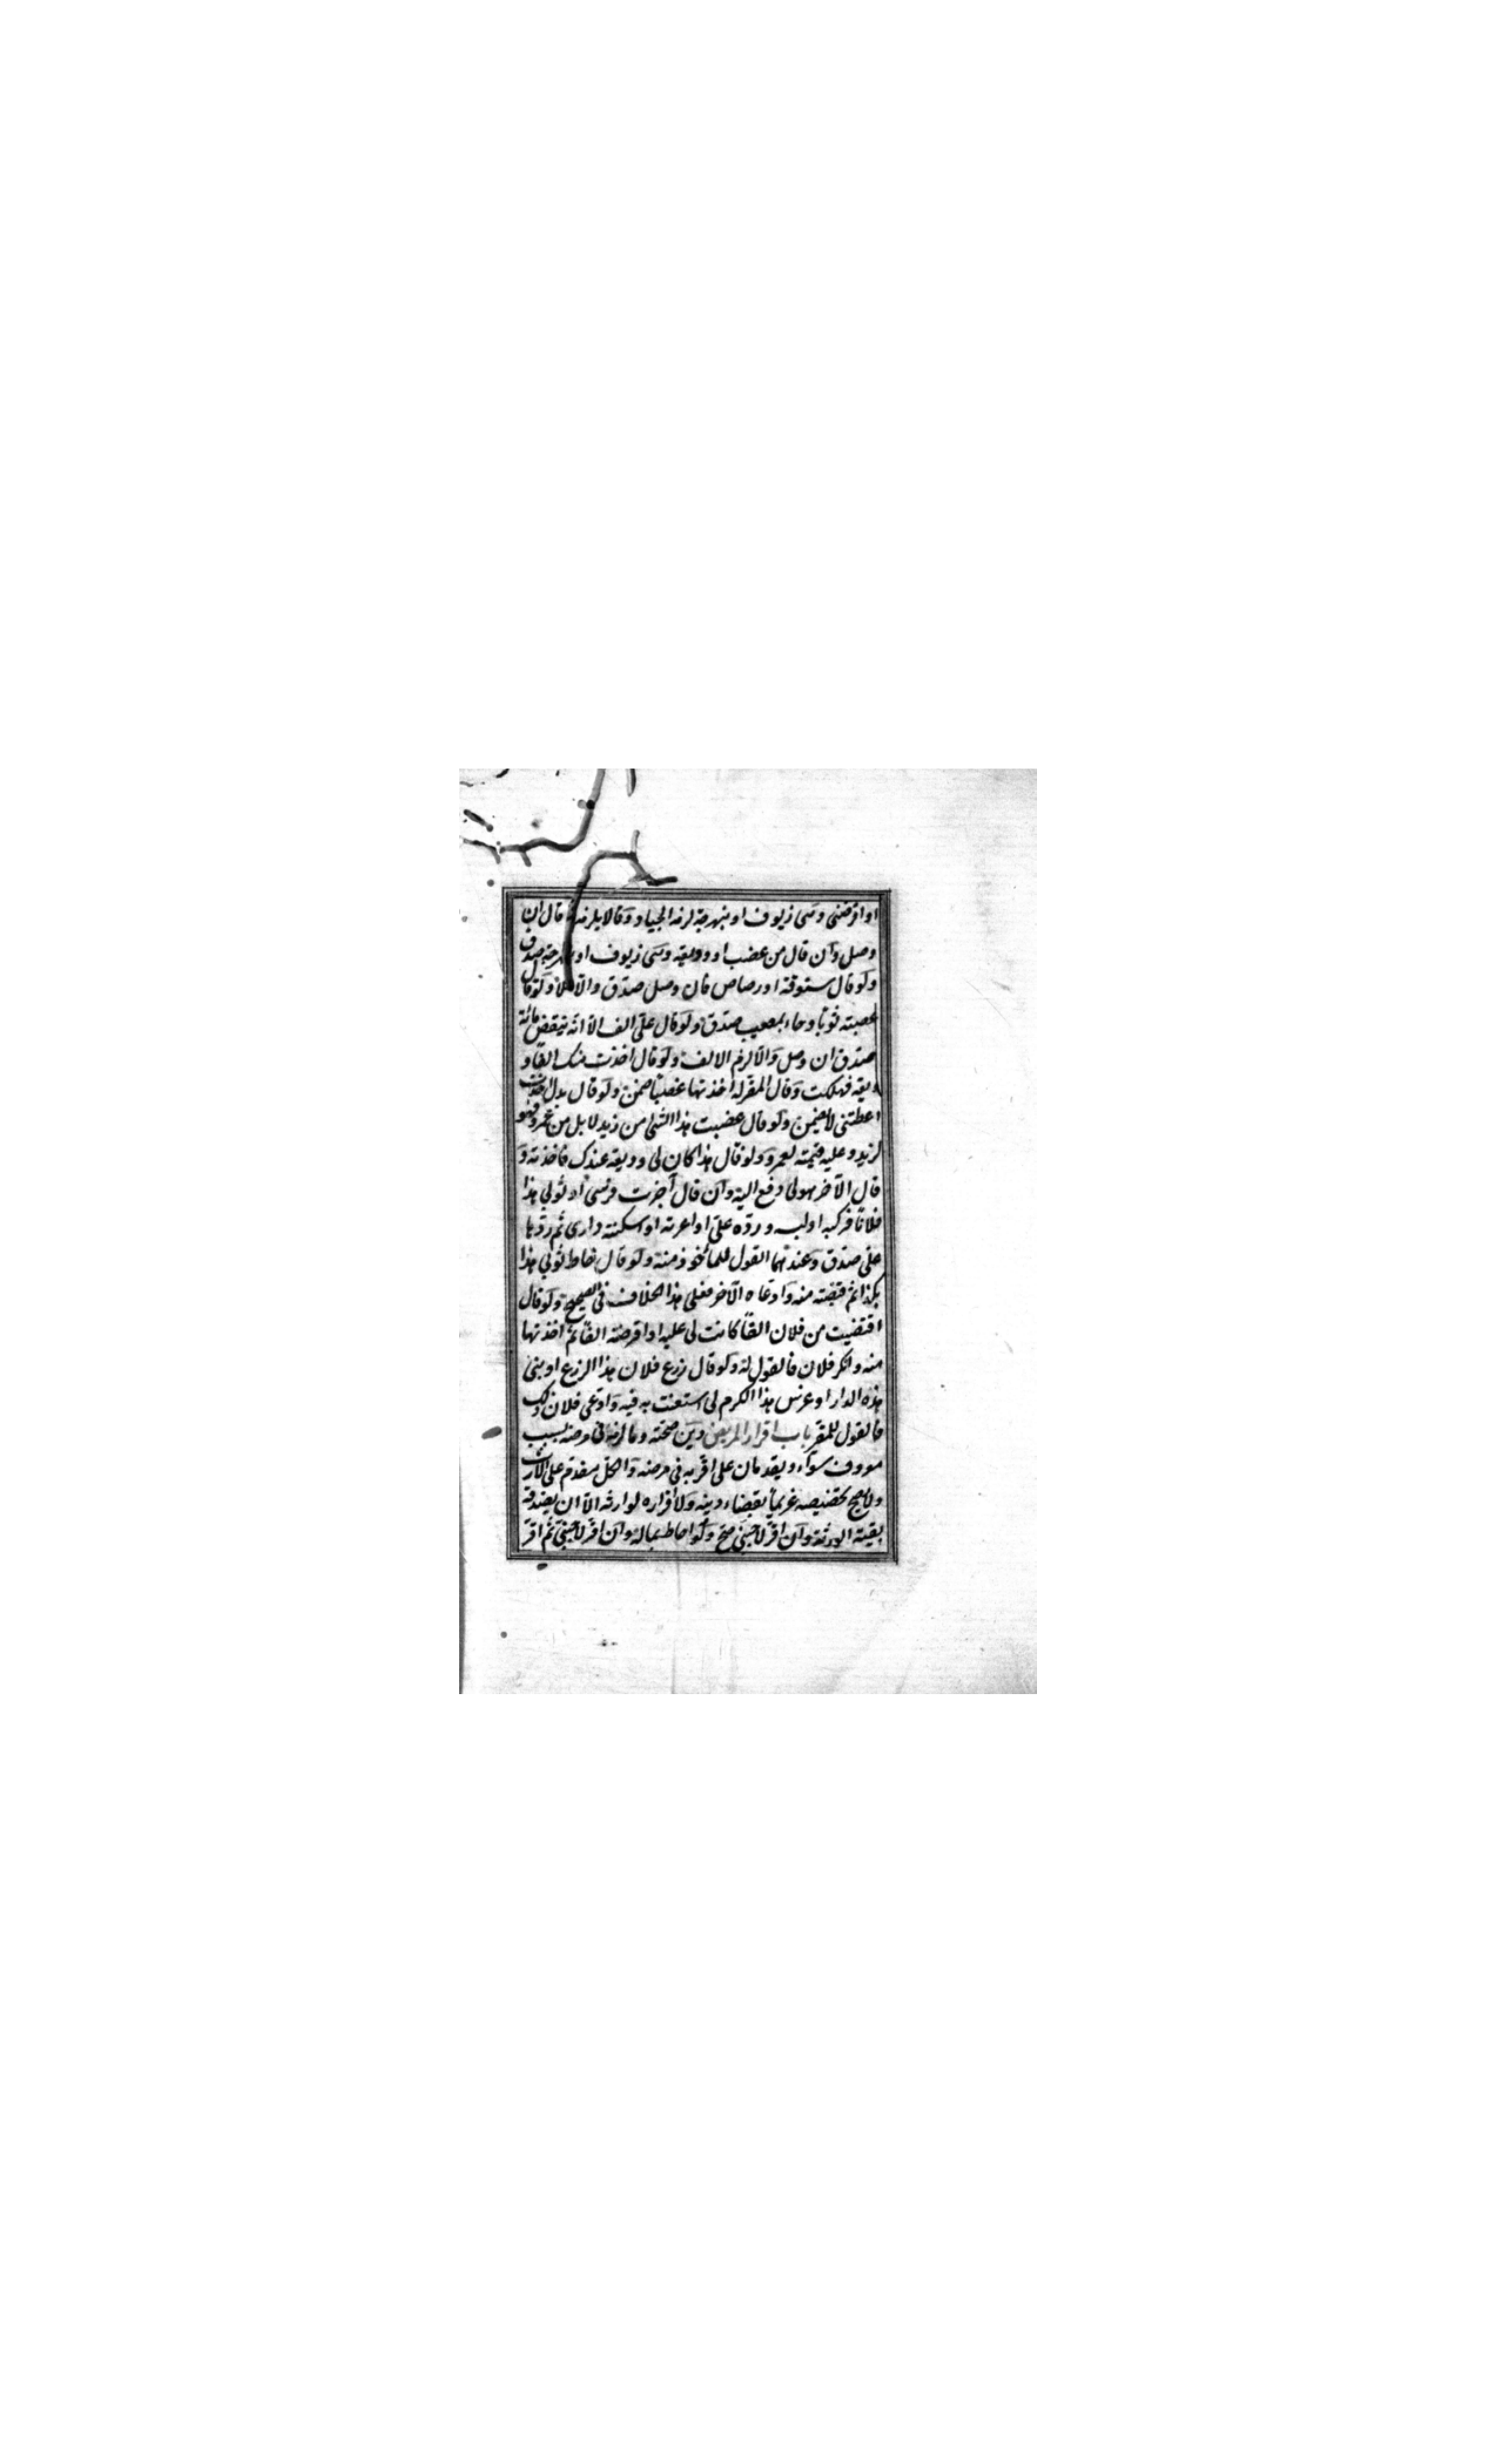 او اقرضنى وهى زيوف او نبهرجة لزمه الجياد وقالا يلزمه ما قال ان
وصل وان قال من غصب او وديعة وهى زيوف او نبهرجة صدق
ولو قال ستوقة او رصاص فان وصل صدق والا فلا ولو قال
غصبته ثوبا وجاء بمعيب صدق ولو قال على الف الا انه ينقص مائة
صدق ان وصل والا لزم الالف ولو قال اخذت منك الفا و
ديعة فهلكت وقال المقر له اخذتها غصبا ضمن ولو قال بدل اخذت
اعطتنى لا يضمن ولو قال غصبت هذا الشئ من زيد لا بل من عمرو فهو
لزيد وعليه قيمته لعمرو ولو قال هذا كان لى وديعة عندك فاخذته و
قال الآخر هو لى دفع اليه وان قال آجرت فرسى او ثوبى هذا
فلانا فركبه او لبسه ورده على او اعرته او اسكنته دارى ثم ردها
على صدق وعندهما القول للمأخوذ منه ولو قال خاط ثوبى هذا
بكذا ثم قبضته منه وادعاه الآخر فعلى هذا الخلاف فى الصحيح ولو قال
اقتضيت من فلان الفا كانت لى عليه او اقرضته الفا ثم اخذتها
منه وانكر فلان فالقول له ولو قال زرع فلان هذا الزرع او بنى
هذه الدار او غرس هذا الكرم لى استعنت به فيه وادعى فلان ذلك
فالقول للمقر باب اقرار المريض دين صحته وما لزمه فى مرضه بسبب
معروف سوآء ويقدمان على ما اقر به فى مرضه والكل مقدم على الارث
ولا يصح تخصيصه غريما بقضاء دينه ولا اقراره لوارثه الا ان يصدقه
بقية الورثة وان اقر لاجنبى صح ولو احاط بماله وان اقر لاجنبى ثم اقر